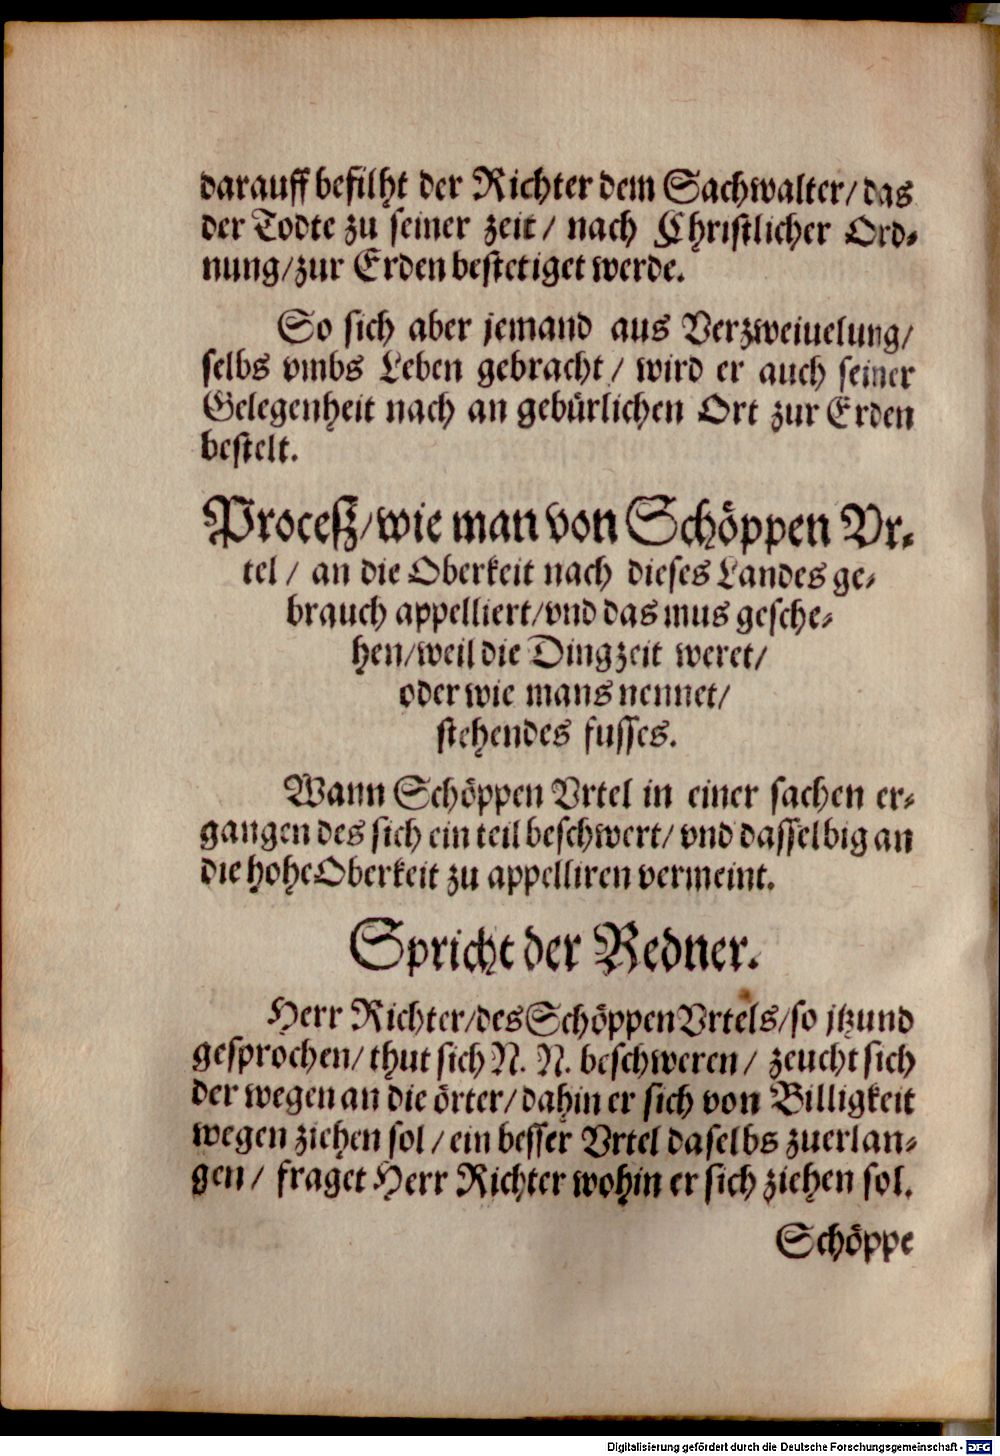 darauff befilht der Richter dem Sachwalter/ das
der Todte zu seiner zeit/ nach Christlicher Ord-
nung/zur Erden bestetiget werde.
So sich aber jemand aus Verzweiuelung/
selbs vmbs Leben gebracht/ wird er auch seiner
Gelegenheit nach an gebürlichen Ort zur Erden
bestelt.
Proceß/wie man von Schöppen Vr-
tel/ an die Oberkeit nach dieses Landes ge-
brauch appelliert/vnd das mus gesche-
hen/weil die Dingzeit weret/
oder wie mans nennet/
stehendes fusses.
Wann Schöppen Vrtel in einer sachen er-
gangen des sich ein teil beschwert/ vnd dasselbig an
die hohe Oberkeit zu appelliren vermeint.
Spricht der Redner.
Herr Richter/des Schöppen Vrtels/so jtzund
gesprochen/ thut sich N. N. beschweren/ zeucht sich
der wegen an die örter/dahin er sich von Billigkeit
wegen ziehen sol/ein besser Vrtel daselbs zuerlan-
gen/ fraget Herr Richter wohin er sich ziehen sol.
Schöppe
Digitalisierung gefördert durch die Deutsche Forschungsgemeinschaft - DFG